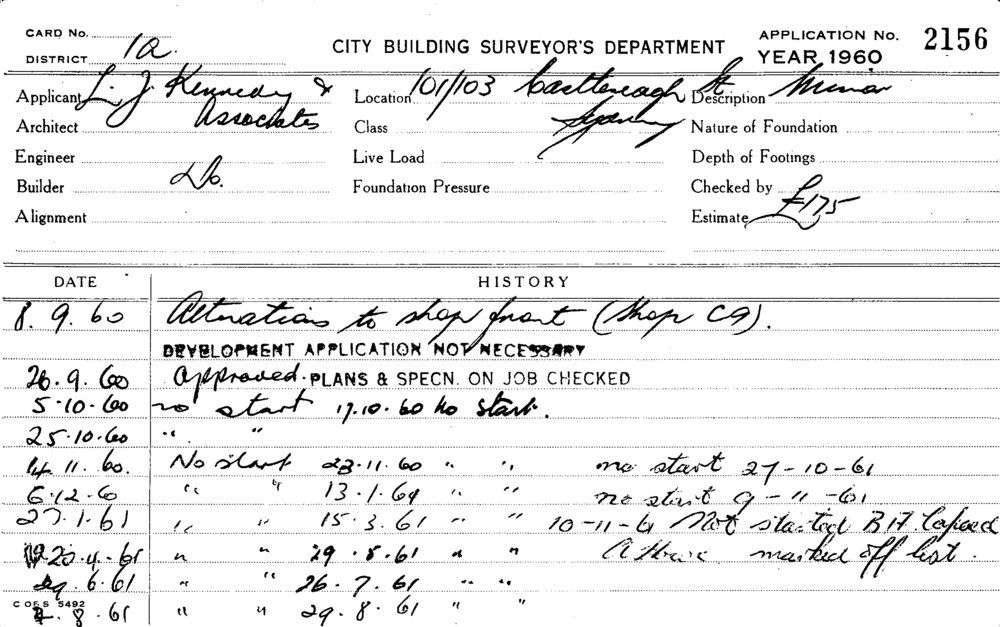 CARD No.
DISTRICT 1a.
CITY BUILDING SURVEYOR'S DEPARTMENT
APPLICATION No. 2156
YEAR 1960
Applicant L. J. Kennedy & Associates
Location 101/103 Castlereagh St Sydney
Description Minor
Architect
Class
Nature of Foundation
Engineer
Live Load
Depth of Footings
Builder Do.
Foundation Pressure
Checked by
Alignment
Estimate £175
DATE HISTORY
8. 9. 60 Alterations to shop front (Shop C9).
DEVELOPMENT APPLICATION NOT NECESSARY
26.9.60 Approved. PLANS & SPECN. ON JOB CHECKED
5.10.60 no start 17.10.60 No start.
25.10.60 " "
14.11.60. No start 23.11.60 " " no start 27-10-61
6.12.60 " " 13.1.61 " " no start 9-11-61
27.1.61 " " 15.3.61 " " 10-11-61 Not started B17 lapsed
20.4.61 " " 29.5.61 " " marked off list.
29.6.61 " " 26.7.61 " "
COES 5492
8.61 " " 29.8.61 " "